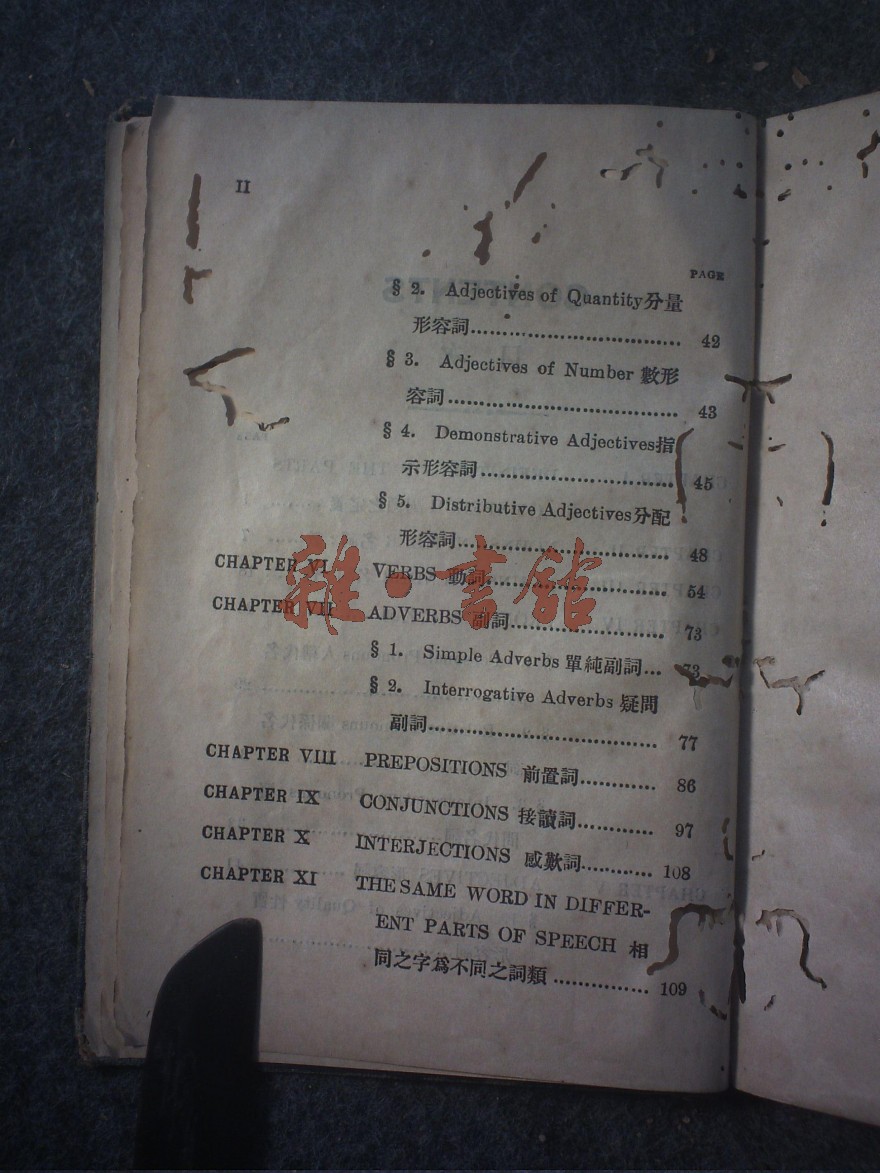 II
PAGE
§ 2. Adjectives of Quantity分量
形容詞.................................... 42
§ 3. Adjectives of Number 數形
容詞....................................... 43
§ 4. Demonstrative Adjectives指
示形容詞................................. 45
§ 5. Distributive Adjectives分配
形容詞.................................... 48
CHAPTER VI VERBS 動詞.............................. 54
CHAPTER VII ADVERBS 副詞.......................... 73
§ 1. Simple Adverbs 單純副詞... 73
§ 2. Interrogative Adverbs 疑問
副詞....................................... 77
CHAPTER VIII PREPOSITIONS 前置詞............ 86
CHAPTER IX CONJUNCTIONS 接讀詞............ 97
CHAPTER X INTERJECTIONS 感歎詞............ 108
CHAPTER XI THE SAME WORD IN DIFFER-
ENT PARTS OF SPEECH 相
同之字爲不同之詞類 ............... 109
雜·書館